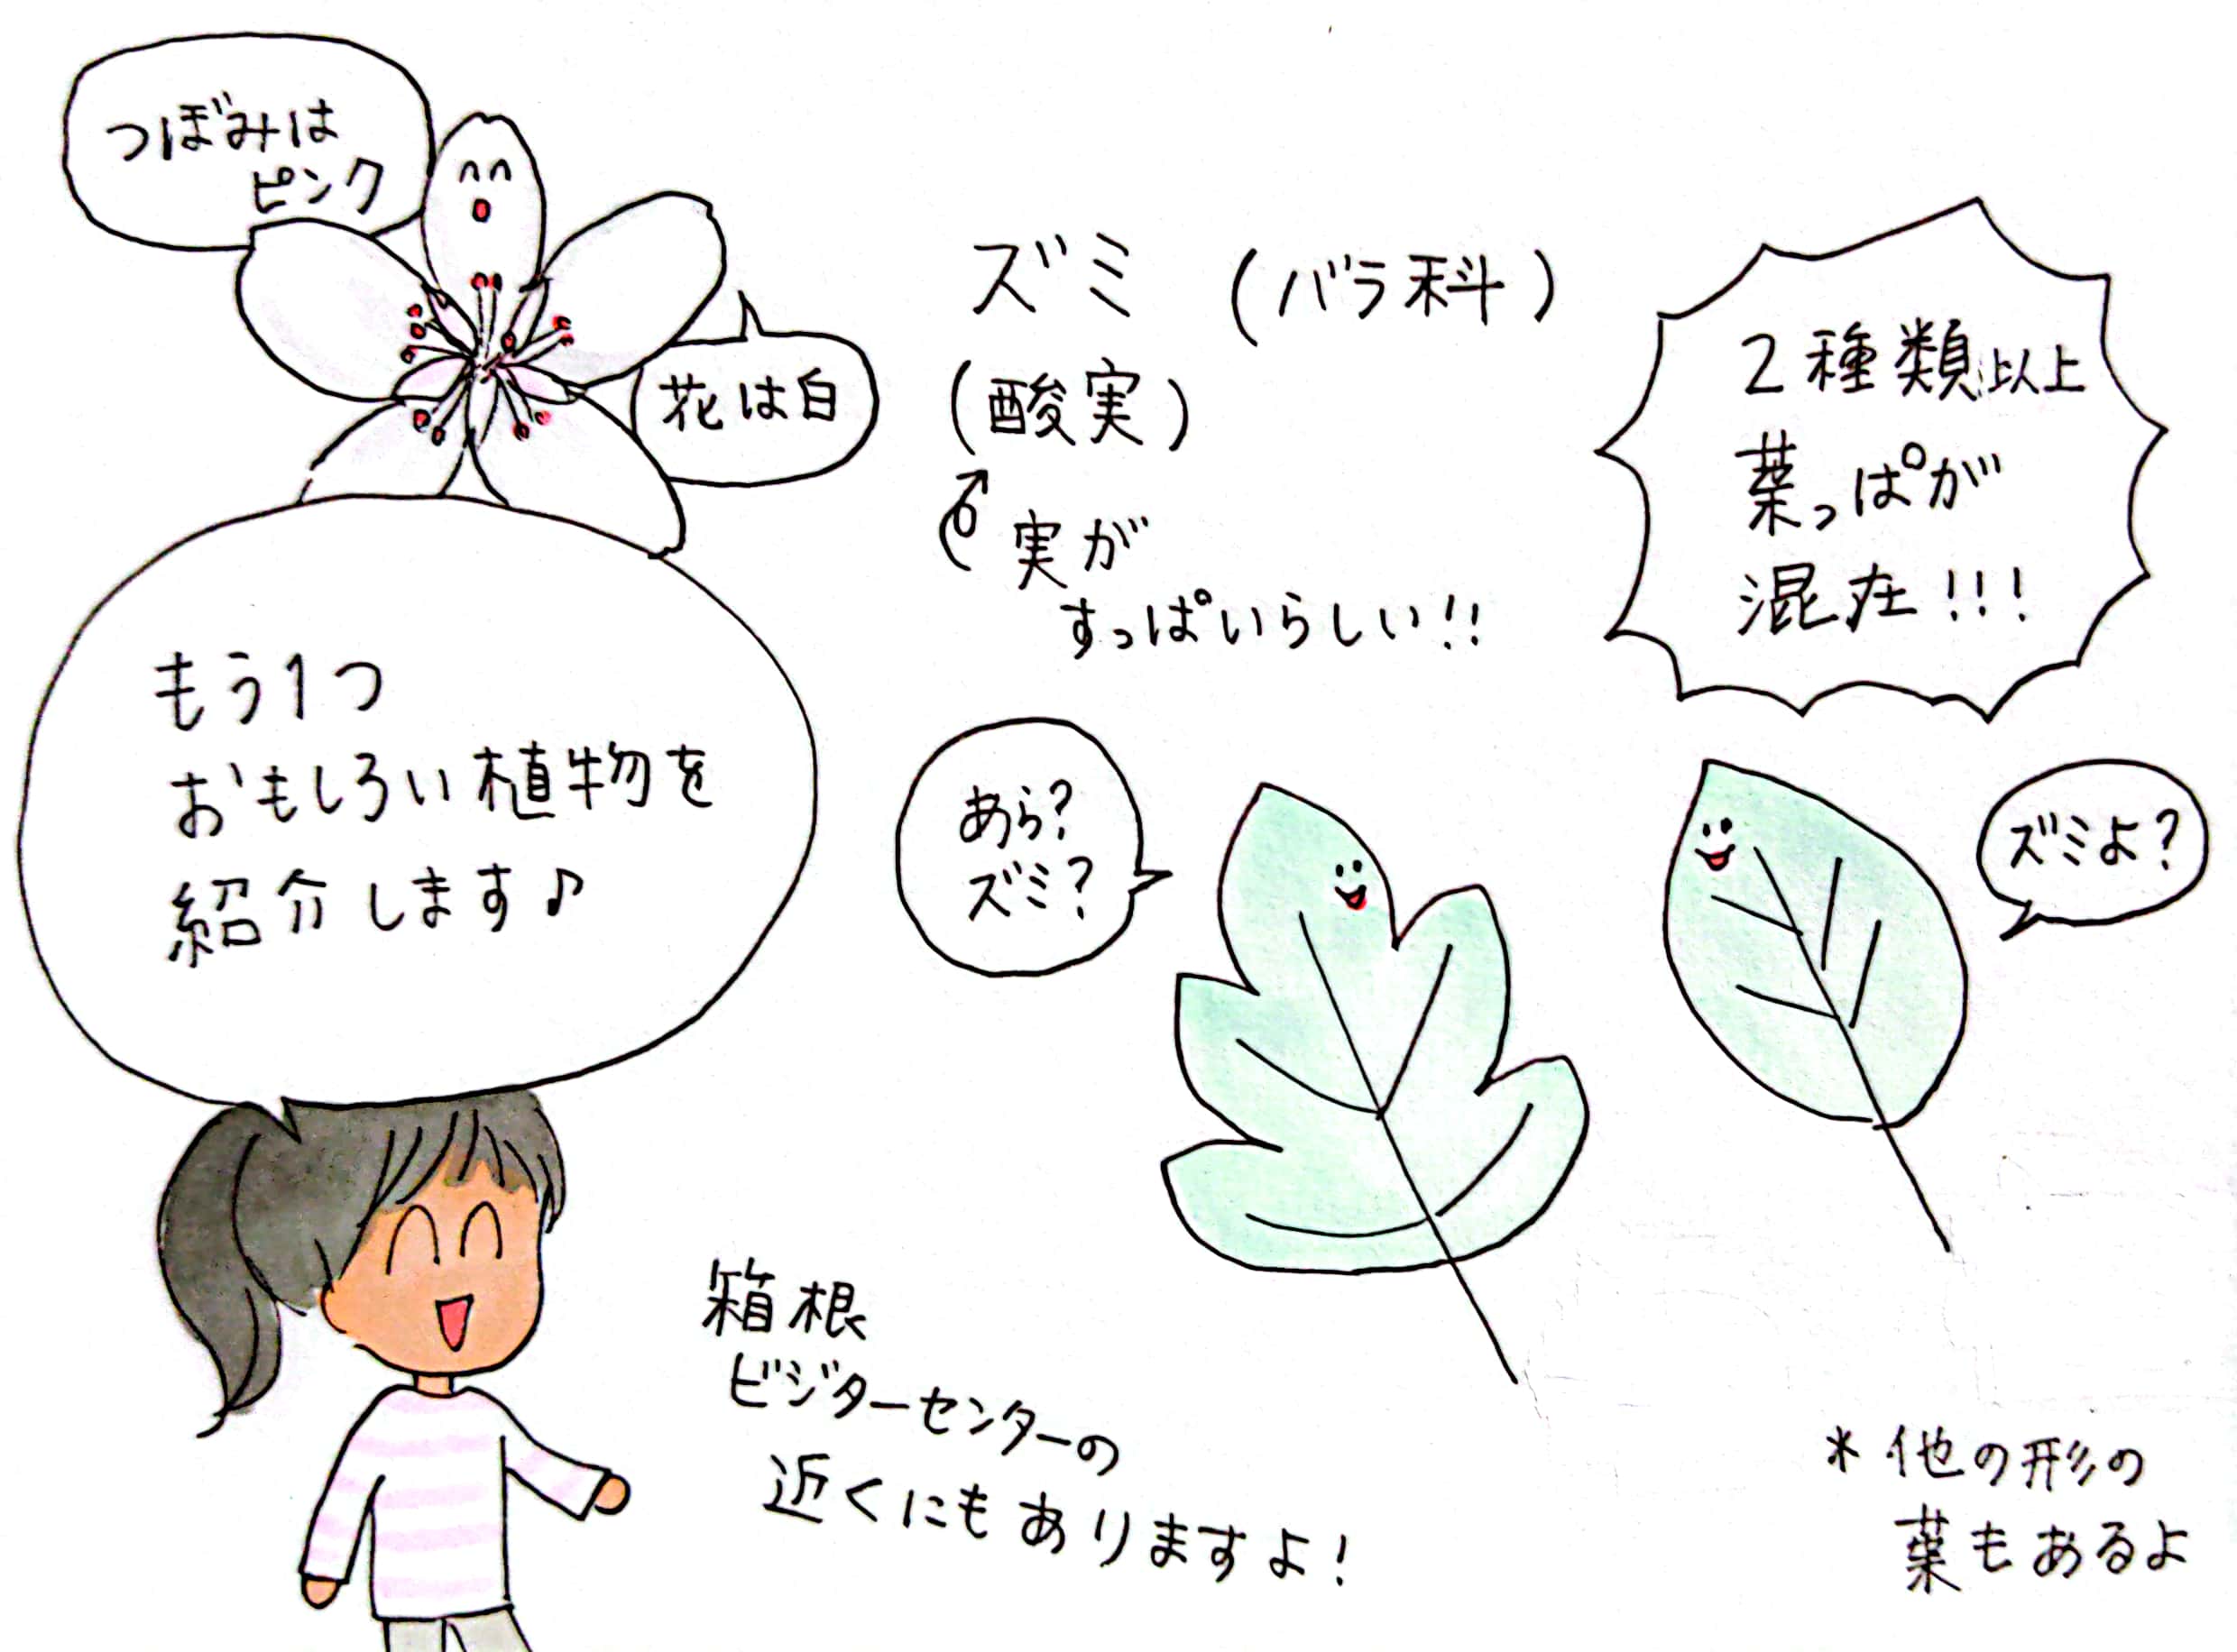 つぼみは
ピンク
花は白
ズミ (バラ科)
(酸実)
実が
すっぱいらしい!!
2種類以上
葉っぱが
混在!!!
もう1つ
おもしろい植物を
紹介します♪
あら?
ズミ?
ズミよ?
箱根
ビジターセンターの
近くにもありますよ!
*他の形の
葉もあるよ